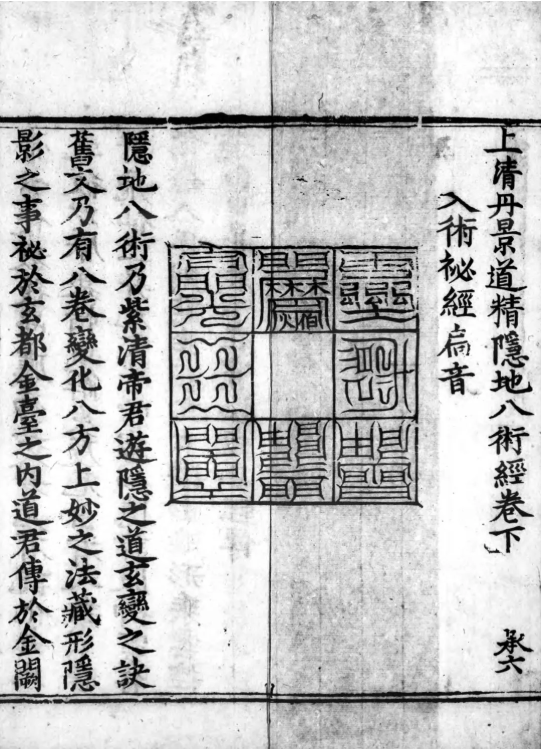 上清丹景道精隱地八術經卷下
承六
八術祕經扁音
隱地八術乃紫清帝君遊隱之道玄變之訣
舊文乃有八卷變化八方上妙之法藏形隱
影之事祕於玄都金臺之内道君傳於金闕